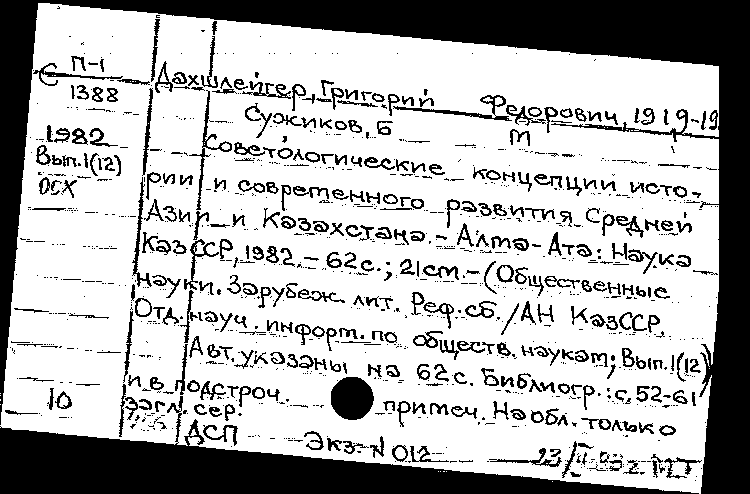 С П-1
1388
Дахшлейгер, Григорий Федорович, 1919-19
Сужиков, Б М
1982
Вып.1(12)
ОСХ
Советологические концепции исто-
рии и современного развития Средней
Азии и Казахстана.- Алма-Ата: Наука
КазССР, 1982.- 62с.; 21см.- (Общественные
науки. Зарубеж. лит. Реф.сб. / АН КазССР,
Отд. науч. информ. по обществ. наукам; Вып.1(12))
Авт. указаны на 62с. Библиогр.: с.52-61
и в подстроч. примеч. На обл. только
загл. сер.
10
ДСП Экз. N 012